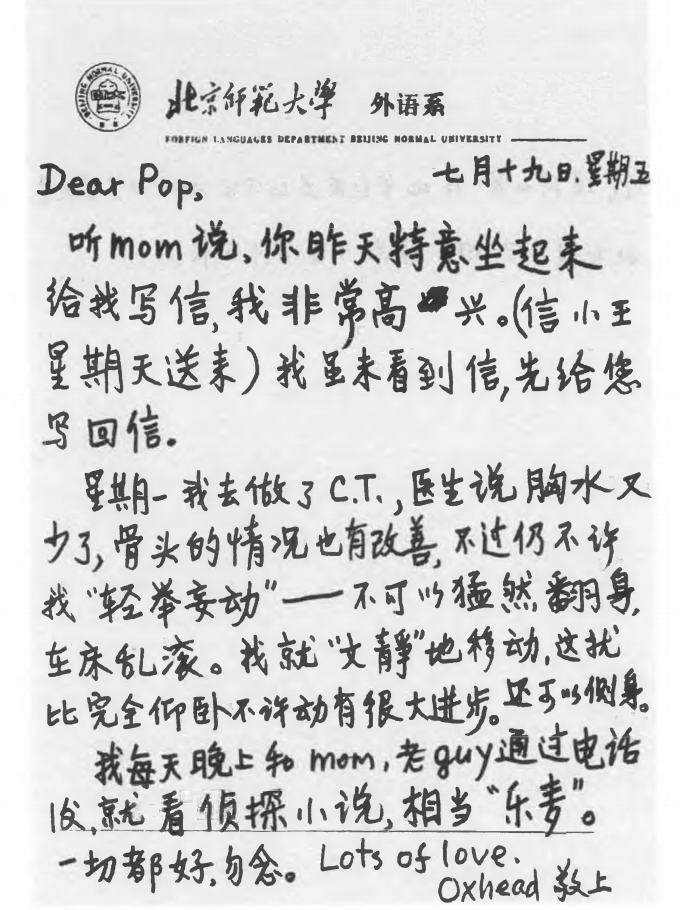 BEIJING NORMAL UNIVERSITY
北京师範大學 外语系
FOREIGN LANGUAGES DEPARTMENT BEIJING NORMAL UNIVERSITY
七月十九日.星期五
Dear Pop,
听mom说,你昨天特意坐起来
给我写信,我非常高兴。(信小王
星期天送来)我虽未看到信,先给您
写回信。
星期一我去做了C.T.,医生说胸水又
少了,骨头的情况也有改善,不过仍不许
我“轻举妄动”——不可以猛然翻身,
在床乱滚。我就“文静”地移动,这就
比完全仰卧不许动有很大进步。还可以侧身。
我每天晚上和mom,老guy通过电话
后,就看侦探小说,相当“乐麦”。
一切都好,勿念。Lots of love.
Oxhead 敬上